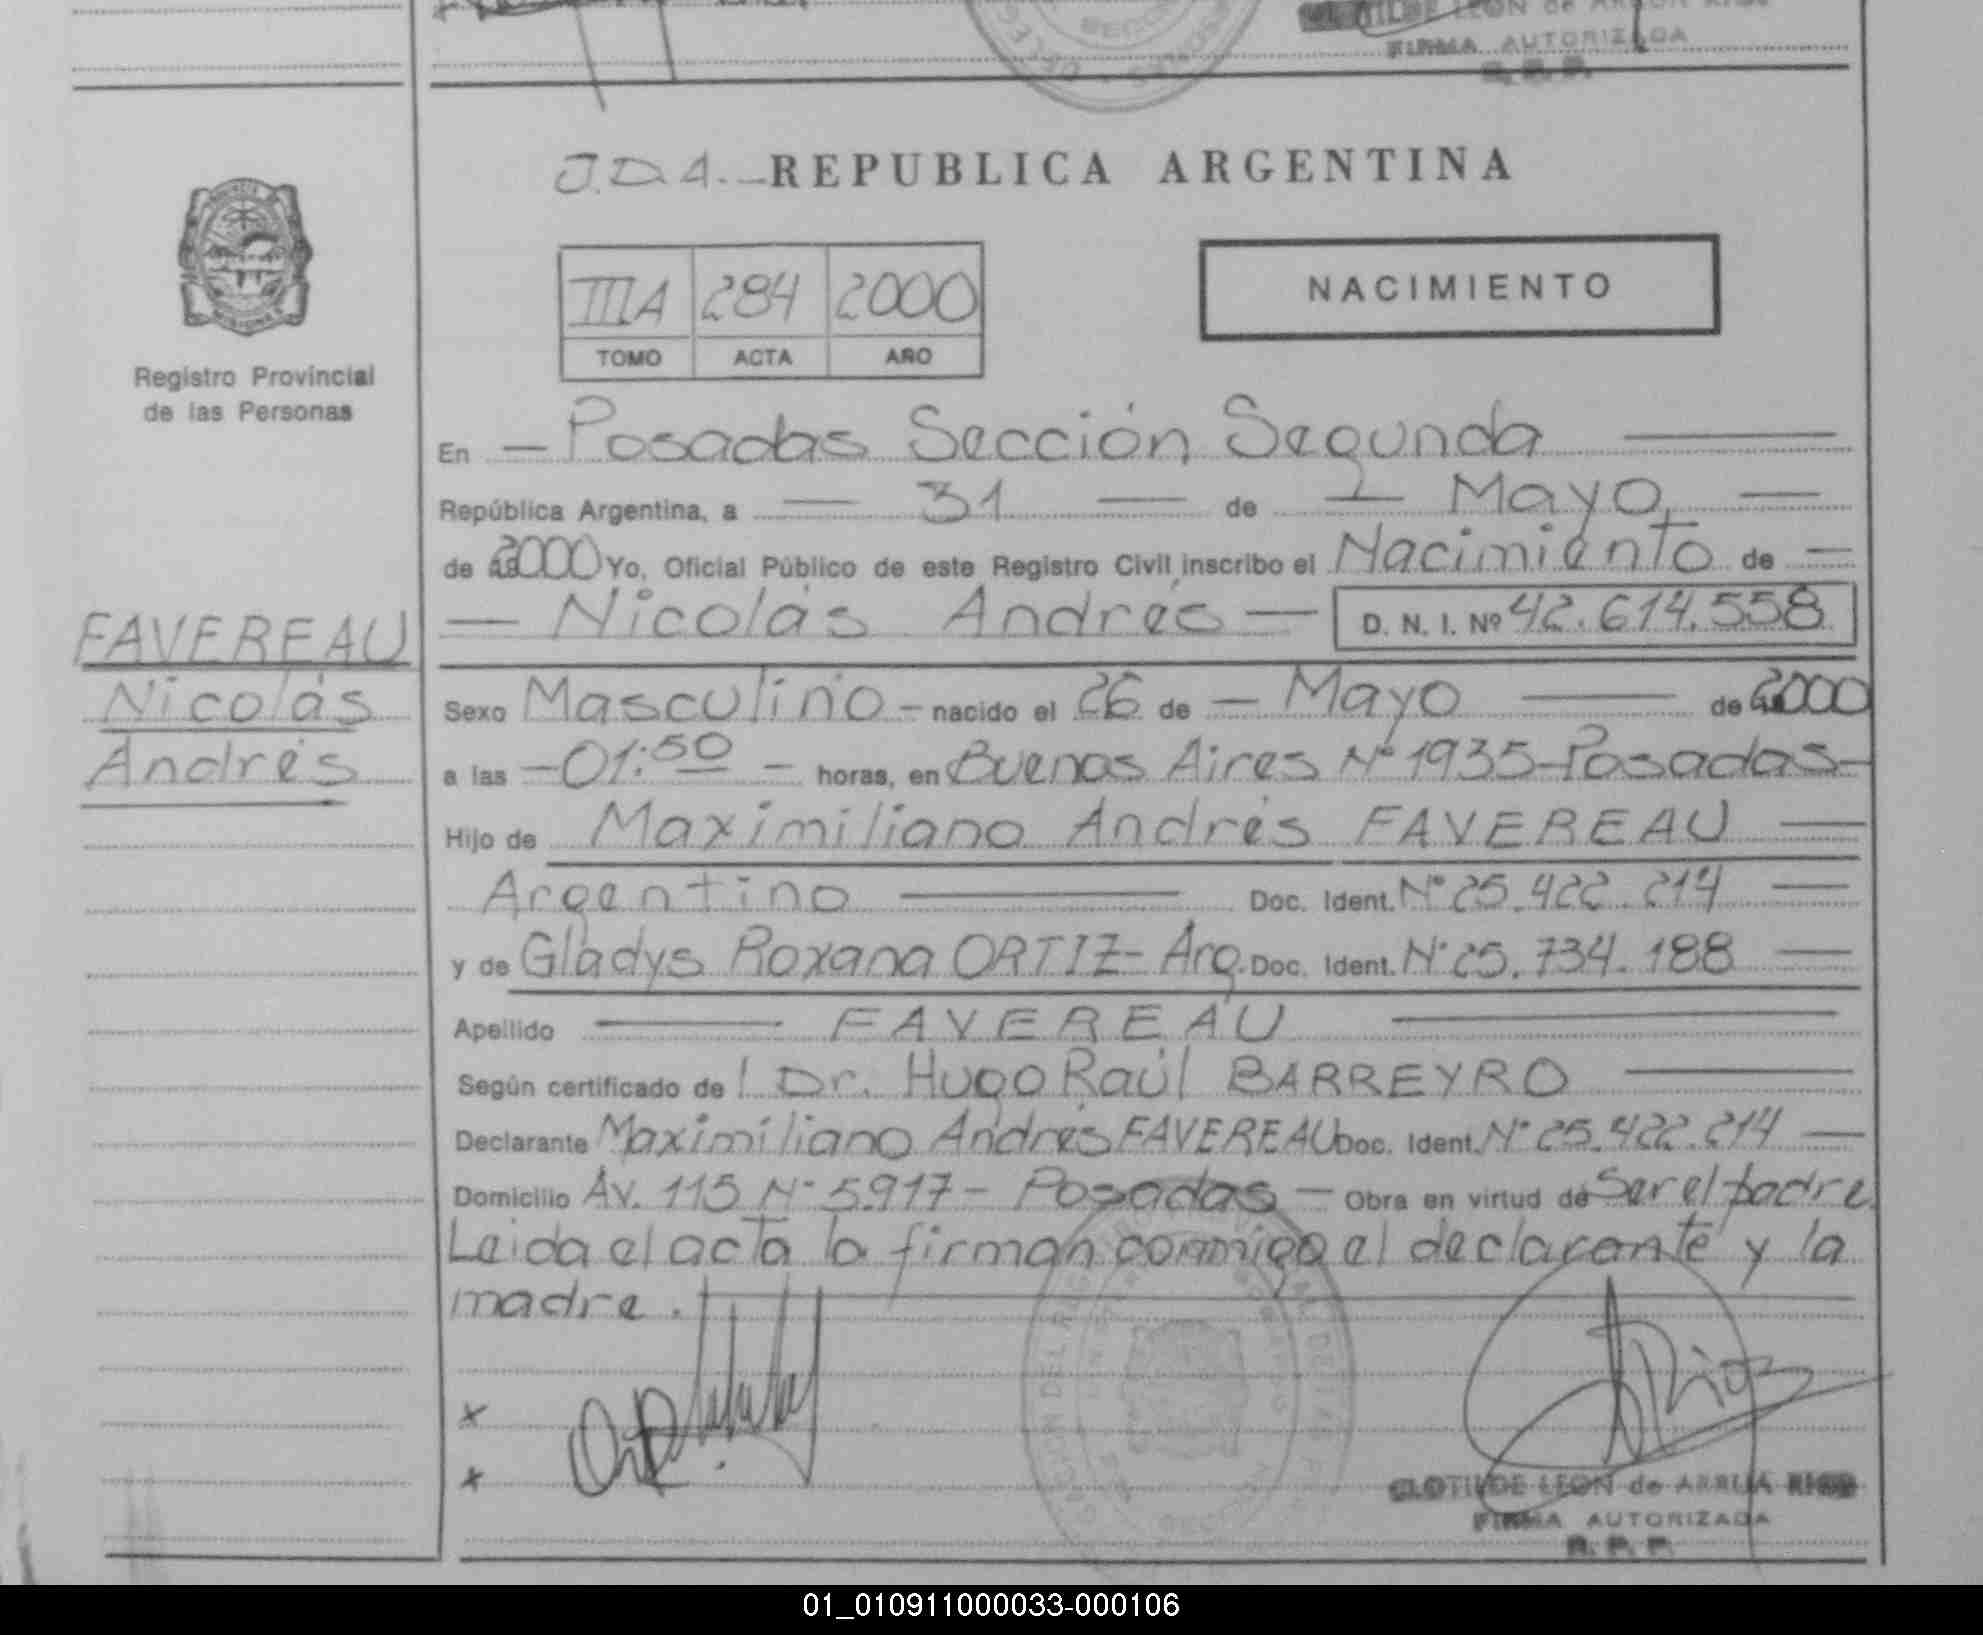 FIRMA AUTORIZADA
R. P. P.
J.D.A. — REPUBLICA ARGENTINA
IIIA 284 2000
TOMO ACTA AÑO
NACIMIENTO
Registro Provincial
de las Personas
FAVEREAU
Nicolás
Andrés
En — Posadas Sección Segunda —
República Argentina, a — 31 — de — Mayo —
de 2000 Yo, Oficial Público de este Registro Civil, inscribo el Nacimiento de —
— Nicolás Andrés — D. N. I. Nº 42.614.558
Sexo Masculino - nacido el 26 de — Mayo — de 2000
a las — 01:50 — horas, en Buenos Aires Nº 1935 - Posadas -
Hijo de Maximiliano Andrés FAVEREAU —
Argentino — Doc. Ident. Nº 25.422.214 —
y de Gladys Roxana ORTIZ - Arg. Doc. Ident. Nº 25.734.188 —
Apellido — FAVEREAU —
Según certificado de l Dr. Hugo Raúl BARREYRO —
Declarante Maximiliano Andrés FAVEREAU Doc. Ident. Nº 25.422.214 —
Domicilio Av. 115 Nº 5.917 - Posadas — Obra en virtud de Ser el padre.
Leida el acta la firman conmigo el declarante y la
madre. —
x
x
CLOTILDE LEON de ARRUA RIOS
FIRMA AUTORIZADA
R. P. P.
01_010911000033-000106